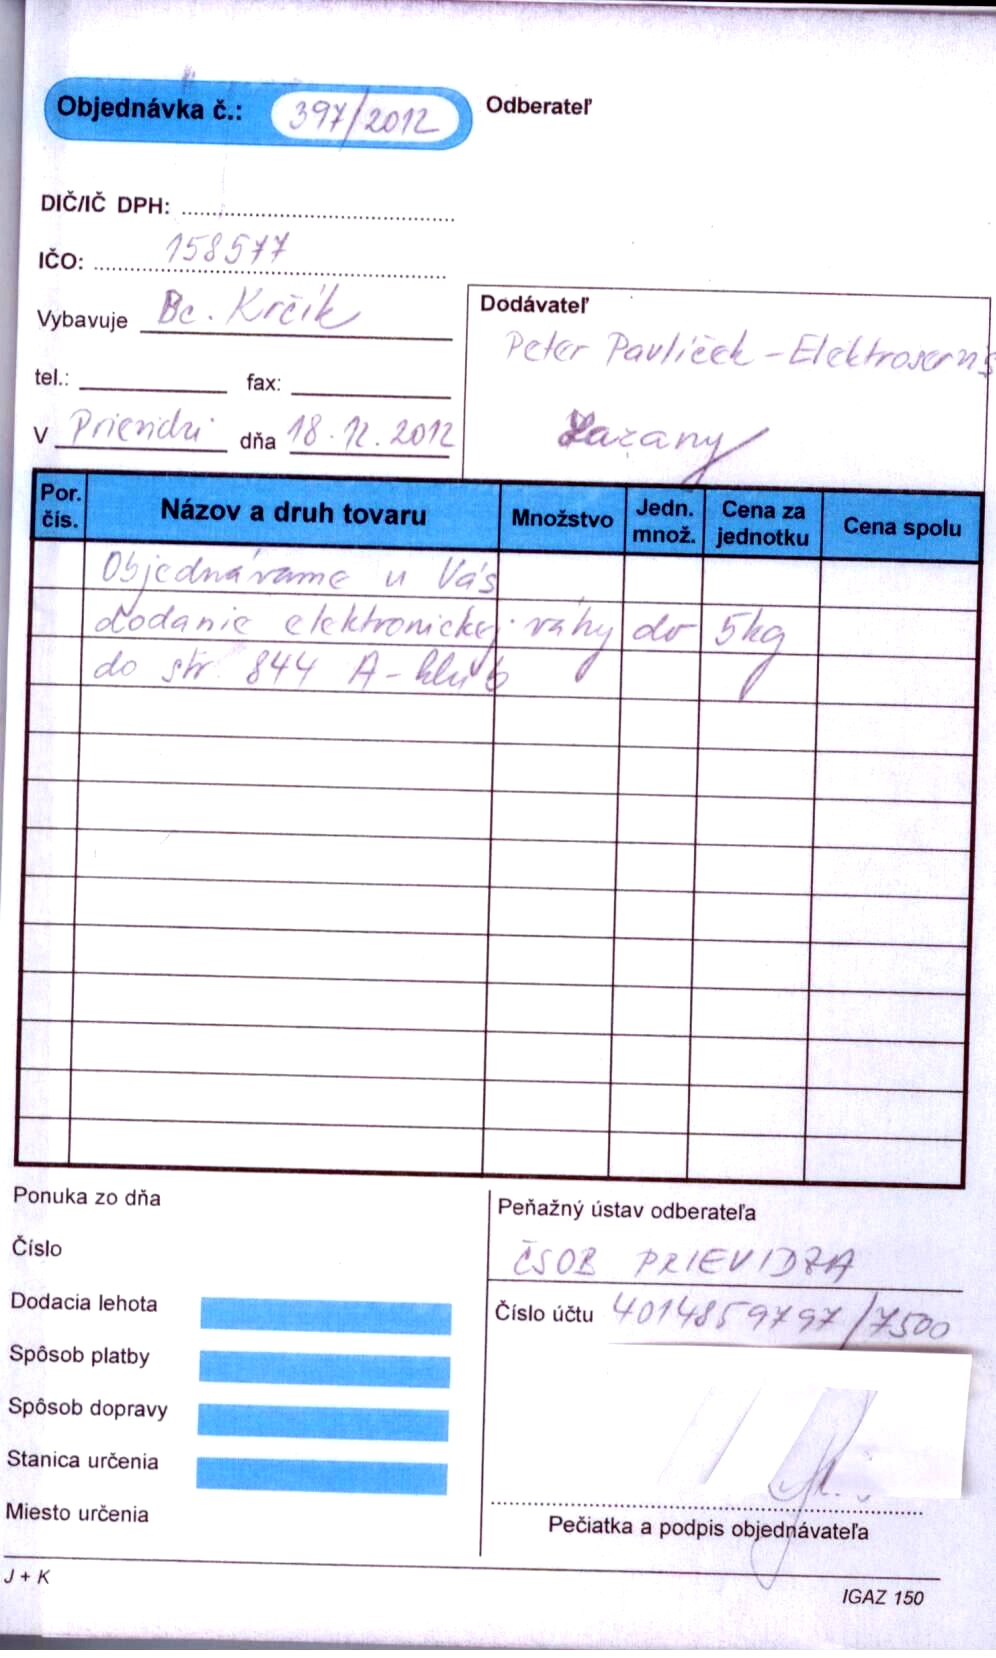 Objednávka č.: 397/2012
Odberateľ
DIČ/IČ DPH:
IČO: 158577
Vybavuje Bc. Krčík
tel.: fax:
V Prievidzi dňa 18.12.2012
Dodávateľ
Peter Pavlíček - Elektroservis
Lazany
Por. čís.
Názov a druh tovaru
Množstvo
Jedn. množ.
Cena za jednotku
Cena spolu
Objednávame u Vás
dodanie elektronickej váhy do 5kg
do str. 844 A-klub
Ponuka zo dňa
Číslo
Dodacia lehota
Spôsob platby
Spôsob dopravy
Stanica určenia
Miesto určenia
Peňažný ústav odberateľa
ČSOB PRIEVIDZA
Číslo účtu 4014859797/7500
Pečiatka a podpis objednávateľa
J + K
IGAZ 150